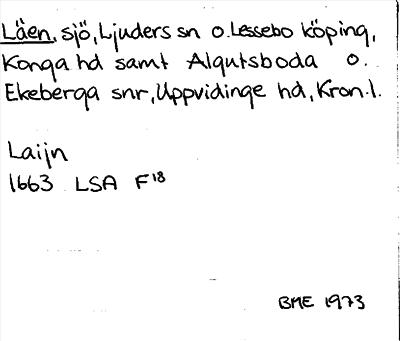 Läen, sjö, Ljuders sn o. Lessebo köping,
Konga hd samt Algutsboda o.
Ekeberga snr, Uppvidinge hd, Kron.l.
Laijn
1663 LSA F18
BME 1973